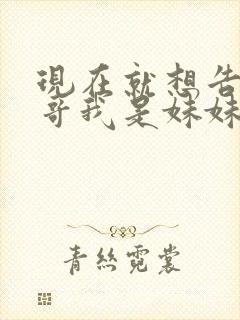 現在就想告
哥我是妹妹
青絲霓裳